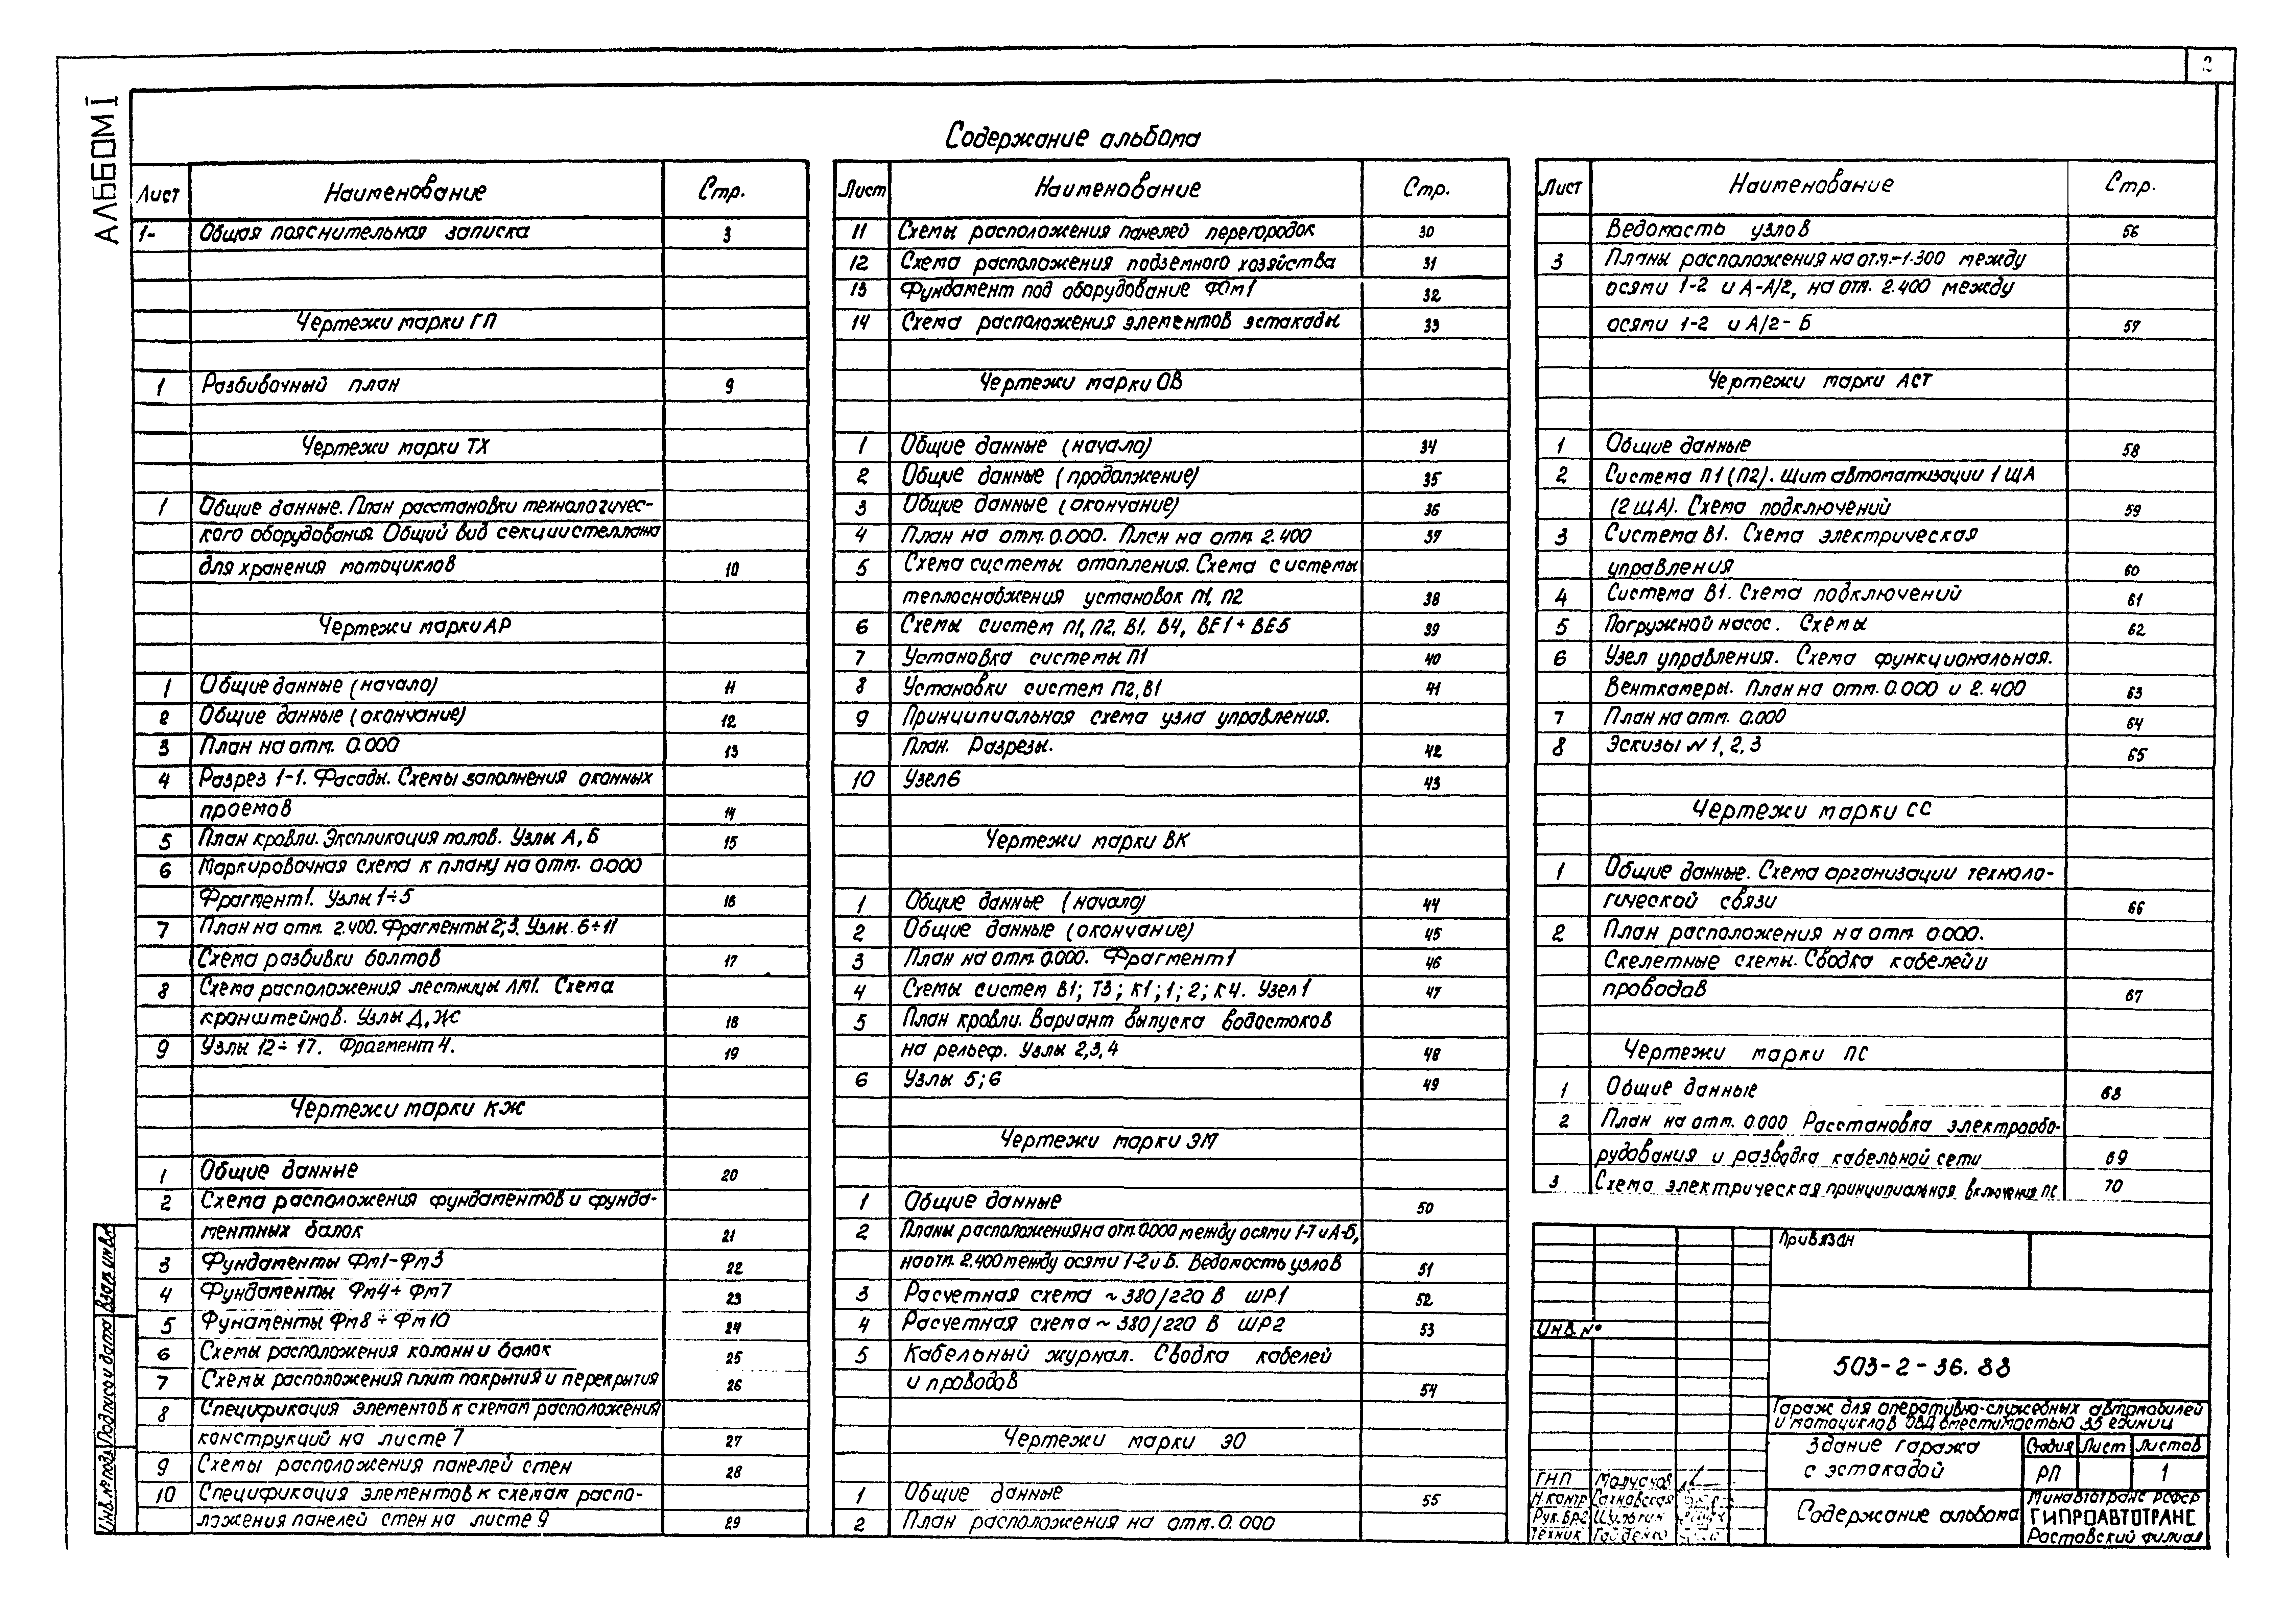 2
АЛЬБОМ I
Содержание альбома
Лист Наименование Стр.
1- Общая пояснительная записка 3
Чертежи марки ГП
1 Разбивочный план 9
Чертежи марки ТХ
1 Общие данные. План расстановки технологичес-
кого оборудования. Общий вид секции стеллажа
для хранения мотоциклов 10
Чертежи марки АР
1 Общие данные (начало) 11
2 Общие данные (окончание) 12
3 План на отм. 0.000 13
4 Разрез 1-1. Фасады. Схемы заполнения оконных
проемов 14
5 План кровли. Экспликация полов. Узлы А, Б 15
6 Маркировочная схема к плану на отм. 0.000
Фрагмент 1. Узлы 1÷5 16
7 План на отм. 2.400. Фрагменты 2; 3. Узлы 6÷11
Схема разбивки болтов 17
8 Схема расположения лестницы ЛМ1. Схема
кронштейнов. Узлы Д, Ж 18
9 Узлы 12÷17. Фрагмент 4. 19
Чертежи марки КЖ
1 Общие данные 20
2 Схема расположения фундаментов и фунда-
ментных балок 21
3 Фундаменты Фм1-Фм3 22
4 Фундаменты Фм4÷Фм7 23
5 Фунаменты Фм8÷Фм10 24
6 Схемы расположения колонн и балок 25
7 Схемы расположения плит покрытия и перекрытия 26
8 Спецификация элементов к схемам расположения
конструкций на листе 7 27
9 Схемы расположения панелей стен 28
10 Спецификация элементов к схемам распо-
ложения панелей стен на листе 9 29
Лист Наименование Стр.
11 Схемы расположения панелей перегородок 30
12 Схема расположения подземного хозяйства 31
13 Фундамент под оборудование ФОм1 32
14 Схема расположения элементов эстакады 33
Чертежи марки ОВ
1 Общие данные (начало) 34
2 Общие данные (продолжение) 35
3 Общие данные (окончание) 36
4 План на отм. 0.000. План на отм. 2.400 37
5 Схема системы отопления. Схема системы
теплоснабжения установок П1, П2 38
6 Схемы систем П1, П2, В1, В4, ВЕ1÷ВЕ5 39
7 Установка системы П1 40
8 Установки систем П2, В1 41
9 Принципиальная схема узла управления.
План. Разрезы. 42
10 Узел 6 43
Чертежи марки ВК
1 Общие данные (начало) 44
2 Общие данные (окончание) 45
3 План на отм. 0.000. Фрагмент 1 46
4 Схемы систем В1; Т3; К1; 1; 2; К4. Узел 1 47
5 План кровли. Вариант выпуска водостоков
на рельеф. Узлы 2, 3, 4 48
6 Узлы 5; 6 49
Чертежи марки ЭМ
1 Общие данные 50
2 Планы расположения на отм. 0.000 между осями 1-7 и А-Б,
на отм. 2.400 между осями 1-2 и Б. Ведомость узлов 51
3 Расчетная схема ~380/220 В ШР1 52
4 Расчетная схема ~380/220 В ШР2 53
5 Кабельный журнал. Сводка кабелей
и проводов 54
Чертежи марки ЭО
1 Общие данные 55
2 План расположения на отм. 0.000
Лист Наименование Стр.
Ведомость узлов 56
3 Планы расположения на отм. -1.300 между
осями 1-2 и А-А/2, на отм. 2.400 между
осями 1-2 и А/2-Б 57
Чертежи марки АСТ
1 Общие данные 58
2 Система П1 (П2). Щит автоматизации 1 ЩА
(2 ЩА). Схема подключений 59
3 Система В1. Схема электрическая
управления 60
4 Система В1. Схема подключений 61
5 Погружной насос. Схемы 62
6 Узел управления. Схема функциональная.
Венткамеры. План на отм. 0.000 и 2.400 63
7 План на отм. 0.000 64
8 Эскизы N 1, 2, 3 65
Чертежи марки СС
1 Общие данные. Схема организации техноло-
гической связи 66
2 План расположения на отм. 0.000.
Скелетные схемы. Сводка кабелей и
проводов 67
Чертежи марки ПС
1 Общие данные 68
2 План на отм. 0.000 Расстановка электрообо-
рудования и разводка кабельной сети 69
3 Схема электрическая принципиальная включения ПС 70
Привязан
Инв. №
503-2-36.88
Гараж для оперативно-служебных автомобилей
и мотоциклов ОВД вместимостью 35 единиц
Здание гаража
с эстакадой
Стадия Лист Листов
РП 1
ГНП
Н.контр Сахновская
Рук.бр.
Техник
Содержание альбома
Минавтотранс РСФСР
ГИПРОАВТОТРАНС
Ростовский филиал
Инв. № подл. Подпись и дата Взам. инв. №